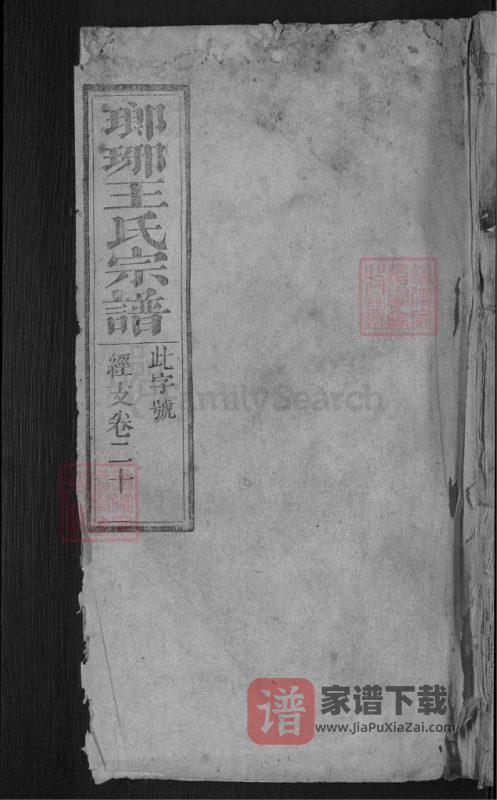 瑯琊王氏宗譜
此字號
經支卷二十
FamilySearch
谱 家谱下载
www.JiaPuXiaZai.com